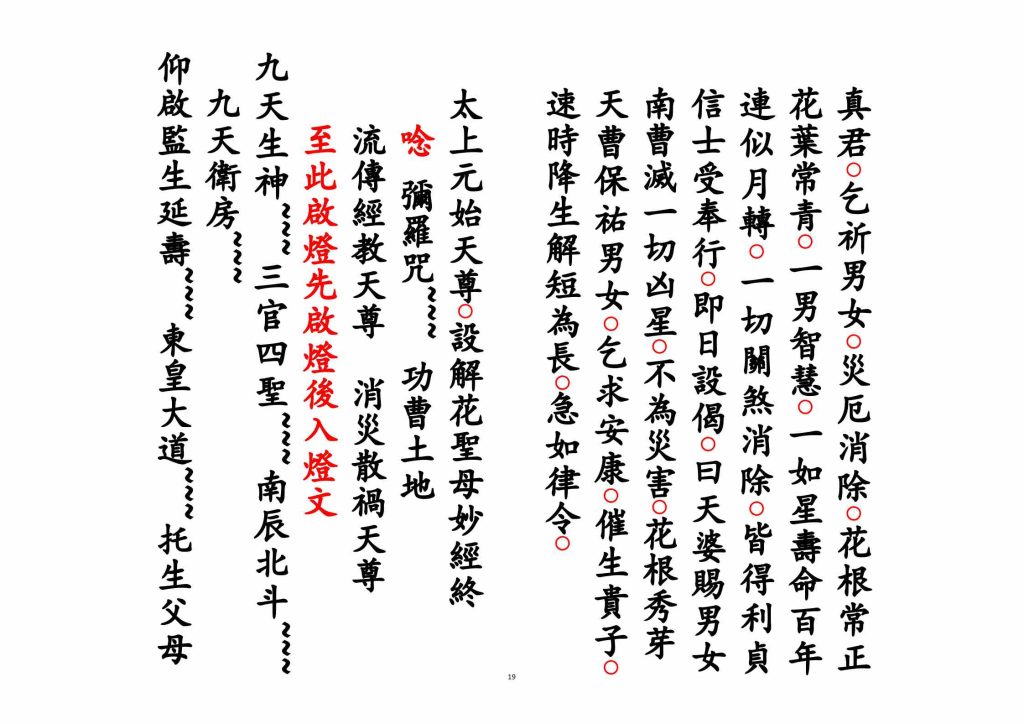 真君○乞祈男女○災厄消除○花根常正
花葉常青○一男智慧○一如星壽命百年
連似月轉○一切關煞消除○皆得利貞
信士受奉行○即日設偈○曰天婆賜男女
南曹滅一切凶星○不為災害○花根秀芽
天曹保祐男女○乞求安康○催生貴子○
速時降生解短為長○急如律令○
太上元始天尊○設解花聖母妙經終
唸 彌羅咒~~~ 功曹土地
流傳經教天尊 消災散禍天尊
至此啟燈先啟燈後入燈文
九天生神~~~ 三官四聖~~~ 南辰北斗~~~
九天衛房~~~
仰啟監生延壽~~~ 東皇大道~~~ 托生父母
19